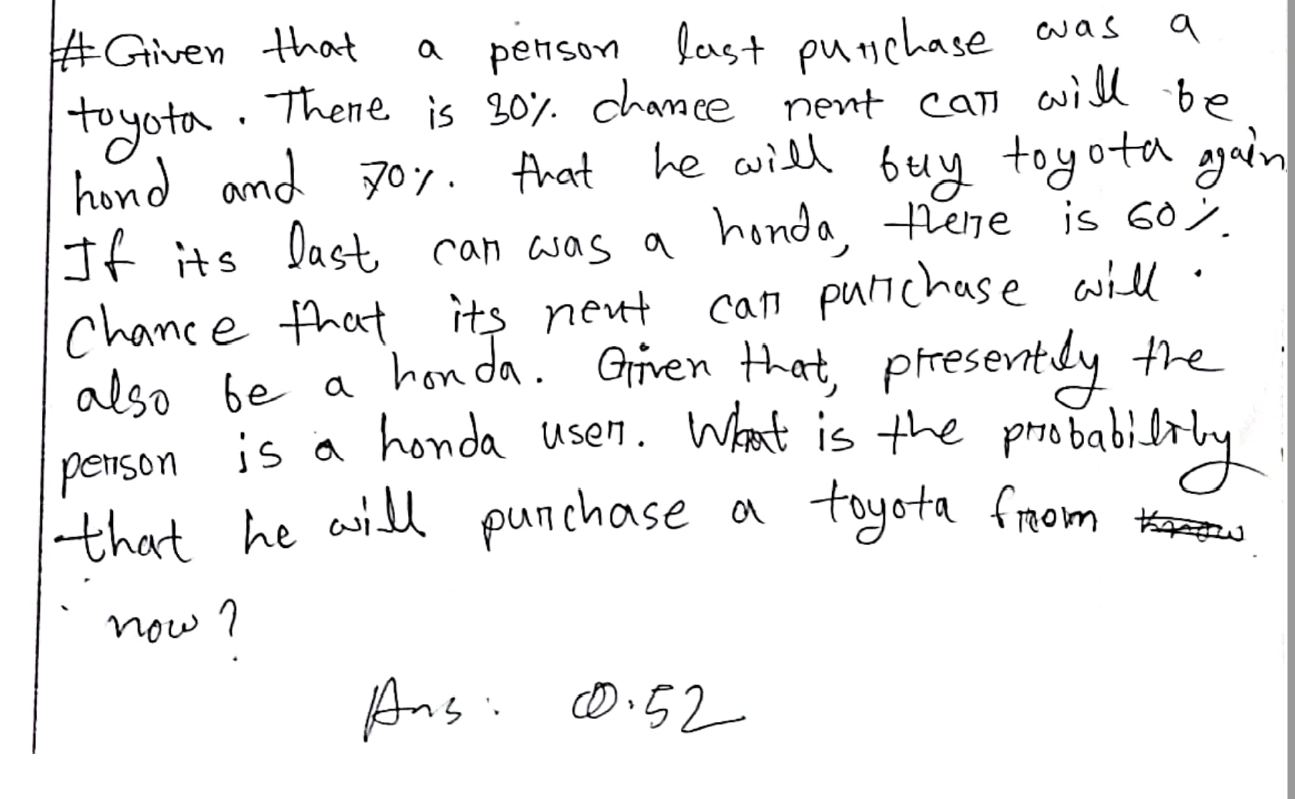 # Given that a person last purchase was a
toyota. There is 30% chance next car will be
hond and 70% that he will buy toyota again
If its last car was a honda, there is 60%
Chance that its next car purchase will
also be a honda. Given that, presently the
person is a honda user. What is the probability
that he will purchase a toyota from
now?
Ans: 0.52